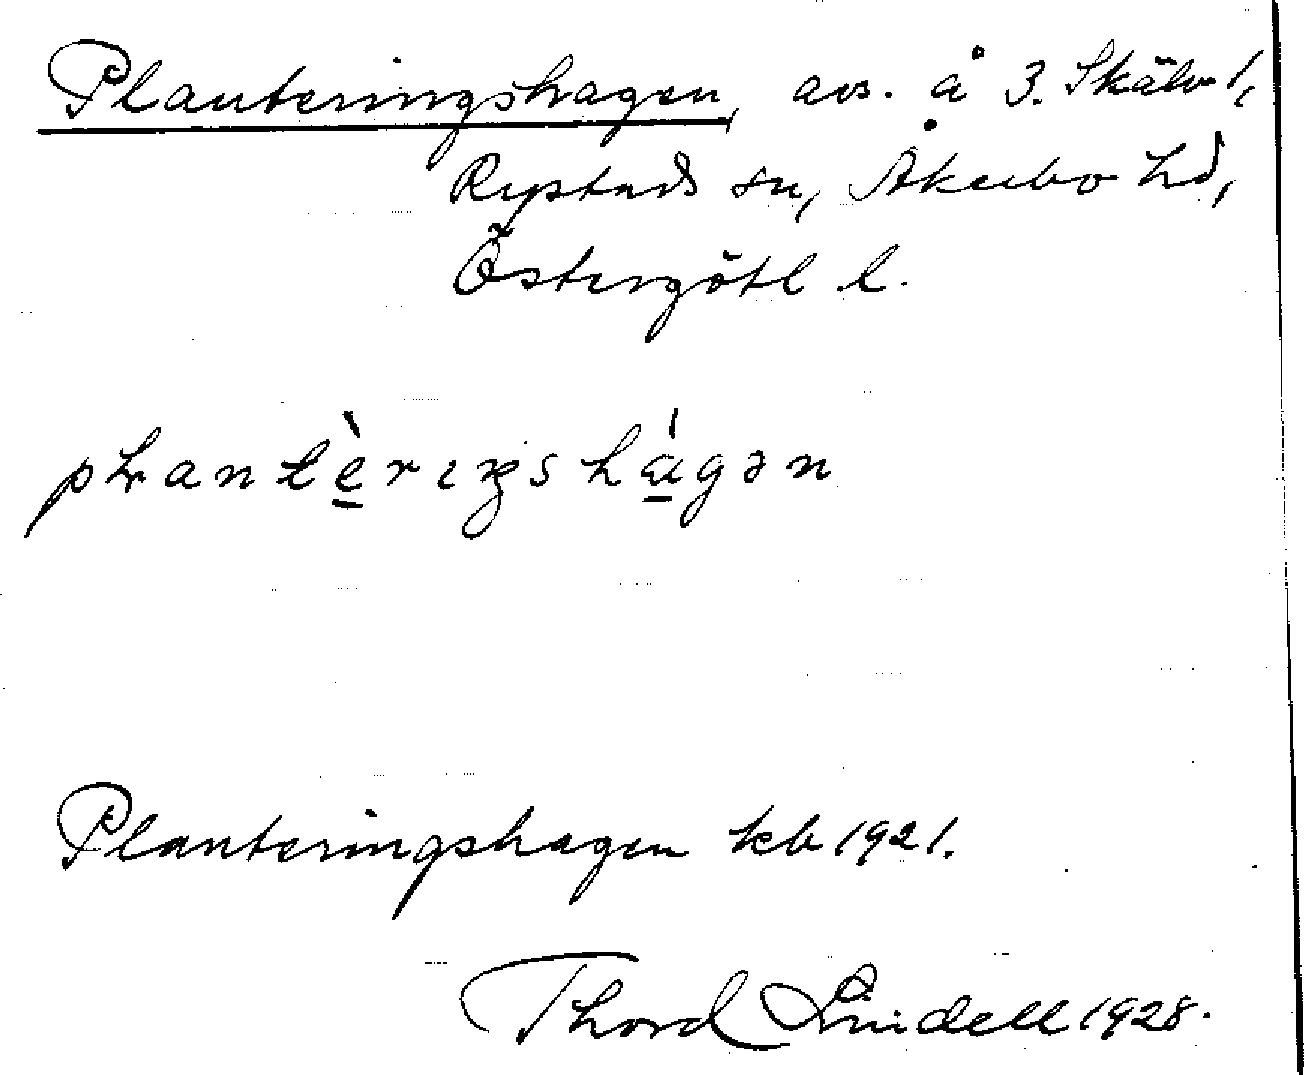 Planteringshagen, avs. å 3. Skälv 1,
Rystads sn, Åkerbo hd,
Östergötl l.
plantèrıŋshágən
Planteringshagen kb 1921.
Thord Lindell 1928.